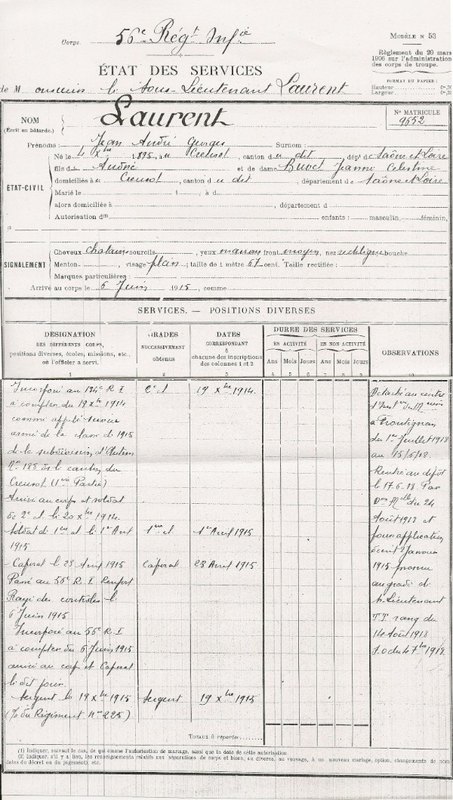 Corps. 56e Régt Infie
MODÈLE N 53
Règlement du 20 mars
1906 sur l'administration
des corps de troupe.
FORMAT DU PAPIER :
Hauteur
Largeur
ÉTAT DES SERVICES
de Monsieur le Sous-Lieutenant Laurent
NOM
(Écrit en bâtarde.)
Laurent
N° MATRICULE
9652
Prénoms : Jean André Georges Surnom :
Né le 4 Xbre 1895, à u Creusot, canton d u dit, dépt Saône et Loire
fils de André et de dame Jeanne Célestine
domiciliés à u Creusot, canton d u dit, département d Saône et Loire
ÉTAT-CIVIL
Marié le : à
alors domiciliée à, département d
Autorisation d enfants : masculin, féminin,
SIGNALEMENT
Cheveux chatain sourcils, yeux marron front moyen, nez rectiligne bouche
Menton, visage plein ; taille de 1 mètre 67 cent. Taille rectifiée :
Marques particulières :
Arrivé au corps le 6 Juin 1915, comme
SERVICES. — POSITIONS DIVERSES
DÉSIGNATION
DES DIFFÉRENTS CORPS,
positions diverses, écoles, missions, etc.,
où l'officier a servi.
GRADES
SUCCESSIVEMENT
obtenus
DATES
CORRESPONDANT
à chacune des inscriptions
des colonnes 1 et 2
DURÉE DES SERVICES
EN ACTIVITÉ
EN NON ACTIVITÉ
Ans Mois Jours Ans Mois Jours
OBSERVATIONS
Incorporé au 134e R.I 2e cl 19 Xbre 1914.
à compter du 19 Xbre 1914
comme appelé service
armé de la classe de 1915
de la subdivision d'Autun
No 185 de le canton du
Creusot (1ère Partie)
Arrivé au corps et soldat
de 2e cl le 20 Xbre 1914.
Soldat de 1ère cl le 1er Avril 1ère cl 1er Avril 1915
1915
Caporal le 23 Avril 1915 Caporal 23 Avril 1915
Passé au 56e R.I Renfort
Rayé des contrôles le
6 Juin 1915
Incorporé au 56e R.I
à compter du 6 Juin 1915
arrivé au corps et Caporal
le dit jour.
Sergent le 19 Xbre 1915 Sergent 19 Xbre 1915
(O du Régiment No 225)
Détaché au centre
à Frontignan
du 1er Juillet 1918
au 15/6/18.
Rentré au dépôt
le 17.6.18 Par
du 24
Août 1918 et
pour application
1915 promu
au grade de
S. Lieutenant
T.T rang du
14 Août 1918
J.O du 4 7bre 1918.
TOTAUX à reporter
(1) Indiquer, suivant le cas, de qui émane l'autorisation de mariage, ainsi que la date de cette autorisation.
(2) Indiquer, s'il y a lieu, les renseignements relatifs aux séparations de corps et biens, au divorce, au veuvage, à un nouveau mariage, option, changements de nom
(dates du décret ou du jugement), etc.